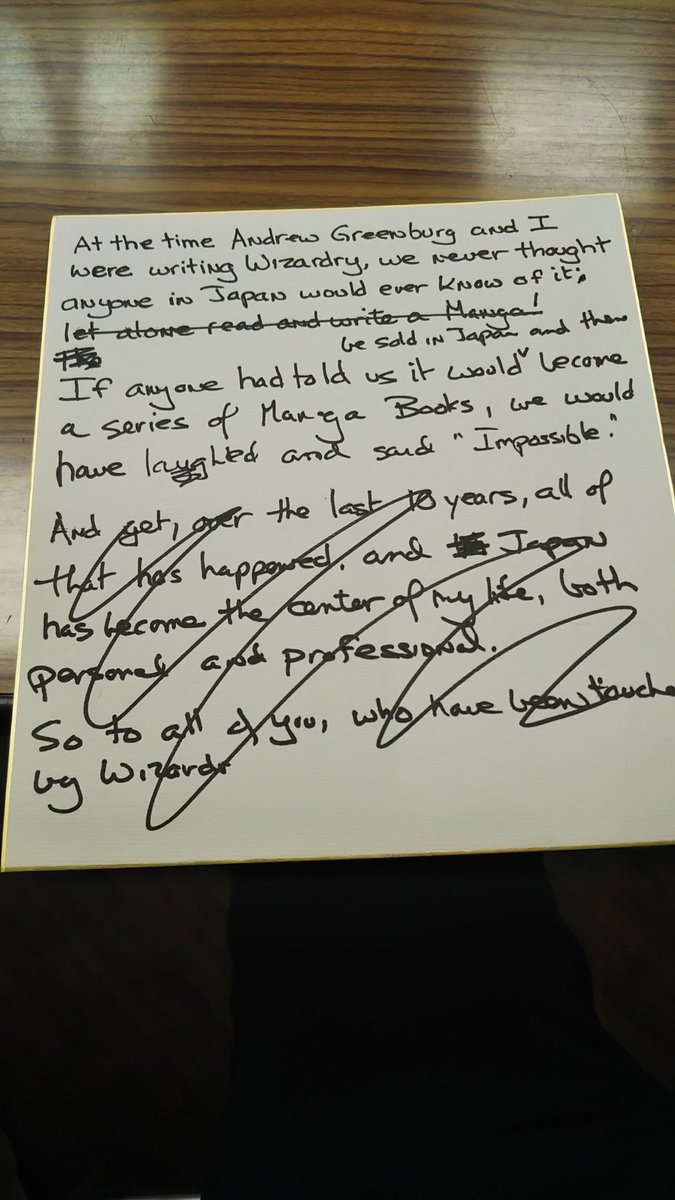 At the time Andrew Greenburg and I
were writing Wizardry, we never thought
anyone in Japan would ever know of it;
let alone read and write a Manga!
be sold in Japan and then
If anyone had told us it would become
a series of Manga Books, we would
have laughed and said "Impossible."
And yet, over the last years, all of
that has happened. and Japan
has become the center of my life, both
personal and professional.
So to all of you, who have been touche
by Wizardr